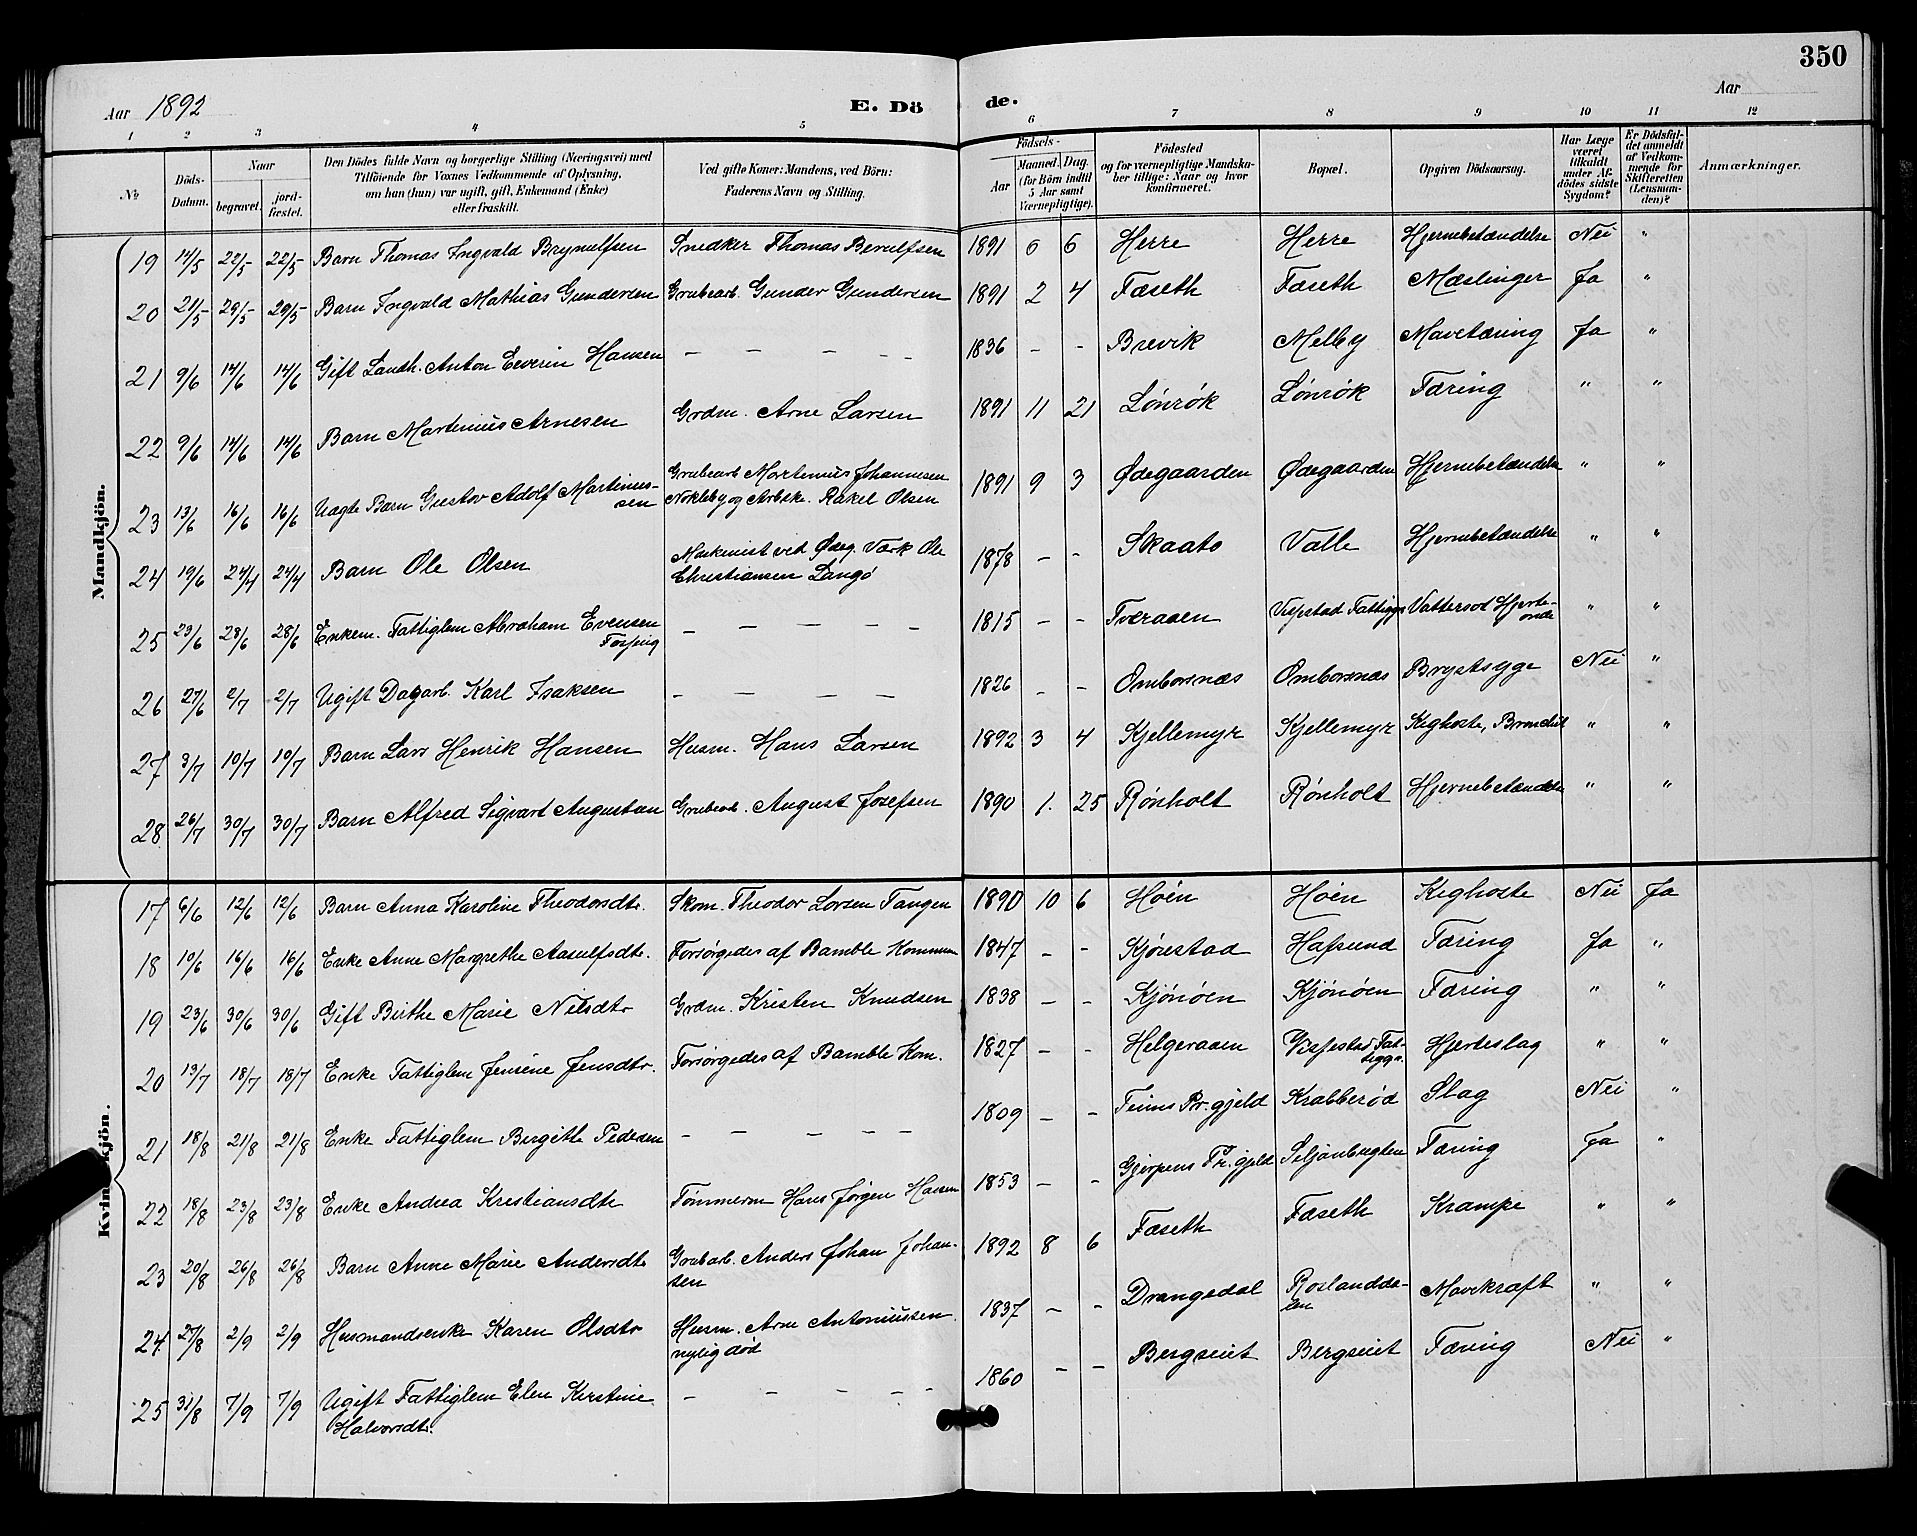 350
Aar 1892 E. Dö de. Aar
1 2 3 4 5 6 7 8 9 10 11 12
No. Döds-Datum. Naar begravet. jordfæstet. Den Dödes fulde Navn og borgerlige Stilling (Næringsvei) med Tilföiende for Voxnes Vedkommende af Oplysning, om han (hun) var ugift, gift, Enkemand (Enke) eller fraskilt. Ved gifte Koner: Mandens, ved Börn: Faderens Navn og Stilling. Födsels- Aar Maaned. Dag. (for Börn indtil 5 Aar samt Værnepligtige). Födested og for værnepligtige Mandskaber tillige: Naar og hvor konfirmeret. Bopæl. Opgiven Dödsaarsag. Har Læge været tilkaldt under Afdödes sidste Sygdom? Er Dödsfaldet anmeldt af Vedkommende for Skifteretten (Lensmanden)? Anmærkninger.
Mandkjön.
19 14/5 22/5 22/5 Barn Thomas Ingvald Brynulfsen Snedker Thomas Berulfsen 1891 6 6 Herre Herre Hjernebetændelse Nei "
20 21/5 29/5 29/5 Barn Ingvald Mathias Gundersen Grubearb. Gunder Gundersen 1891 2 4 Fæseth Fæseth Mæslinger Ja "
21 9/6 14/6 14/6 Gift Landh. Anton Severin Hansen – – – – – 1836 – – Brevik Melby Mavetæring Ja "
22 9/6 14/6 14/6 Barn Martinius Arnesen Grdm. Arne Larsen 1891 11 21 Lönrök Lönrök Tæring " "
23 13/6 16/6 16/6 Uægte Barn Gustav Adolf Martinius-
sen Grubearb Martinius Johannesen
Nokleby og Arbske. Rakel Olsen 1891 9 3 Ødegaarden Ødegaarden Hjernebetændelse " "
24 19/6 24/4 24/4 Barn Ole Olsen Maskinist ved Ødeg. Værk Ole
Christiansen Langö 1878 – – Skaato Valle Hjernebetændelse " "
25 23/6 28/6 28/6 Enkem. Fattiglem Abraham Evensen
– – – – – 1815 – – Tveraaen Vissestad Fattigg. Vattersot Hjerte-
onde " "
26 27/6 2/7 2/7 Ugift Dagarb. Karl Isaksen – – – – 1826 – – Omborsnæs Omborsnæs Brystsyge Nei "
27 3/7 10/7 10/7 Barn Lars Henrik Hansen Husm. Hans Larsen 1892 3 4 Kjellemyr Kjellemyr Kighoste, Bronchit " "
28 26/7 30/7 30/7 Barn Alfred Sigvart Augustsen Grubearb. August Josefsen 1890 1. 25 Rönholt Rönholt Hjernebetændelse " "
Kvindekjön.
17 6/6 12/6 12/6 Barn Anna Karoline Theodorsdtr. Skom. Theodor Larsen Tangen 1890 10 6 Höen Höen Kighoste Nei Ja
18 10/6 16/6 16/6 Enke Anne Margrethe Aasulfsdtr. Forsörgedes af Bamble Kommune 1847 – – Kjörestad Hafsund Tæring Ja "
19 23/6 30/6 30/6 Gift Birthe Marie Nilsdtr Grdm. Kristen Knudsen 1838 – – Kjönöen Kjönöen Tæring " "
20 13/7 18/7 18/7 Enke Fattiglem Jensine Jensdtr. Forsörgedes af Bamble Kom. 1827 – – Helgeraaen Vissestad Fat-
tigg. Hjerteslag " "
21 18/8 21/8 21/8 Enke Fattiglem Birgitte Pedersen – – – – – 1809 – – Teims Pr.gjeld Krabberöd Slag Nei "
22 18/8 23/8 23/8 Enke Andrea Kristiansdtr Tömmerm Hans Jörgen Hansen 1853 – – Gjerpens Pr.gjeld Siljanbugten Tæring Ja "
23 20/8 26/8 26/8 Barn Anne Marie Andersdtr Grubarb. Anders Johan Johan-
sen 1892 8 6 Fæseth Fæseth Krampe " "
24 27/8 2/9 2/9 Husmandsenke Karen Olsdtr Husm. Arne Antoniussen.
nylig död 1837 – – Drangedal Roslandda-
len Mavekræft " "
25 31/8 7/9 7/9 Ugift Fattiglem Elen Kirstine
Halvorsdtr. – – – – – 1860 – – Bergseiet Bergseiet Tæring Nei "